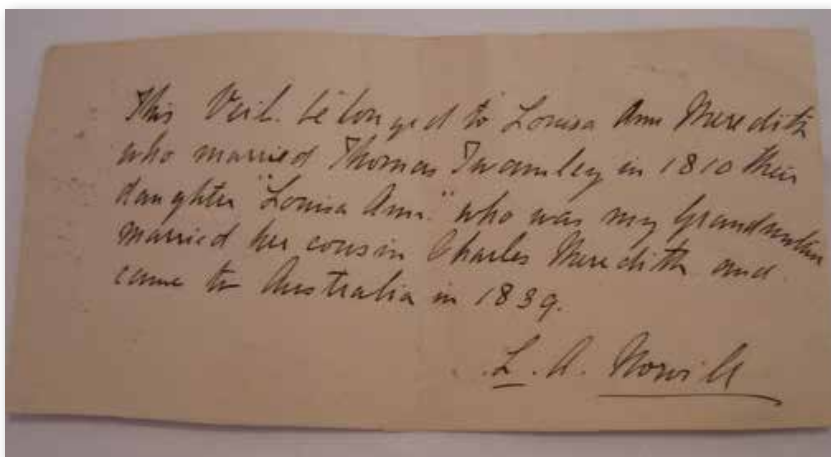 This Veil. belonged to Louisa Ann Meredith
who married Thomas Twamley in 1810 their
daughter "Louisa Ann" who was my Grandmother
married her cousin Charles Meredith and
came to Australia in 1839.
L. A. Norvill